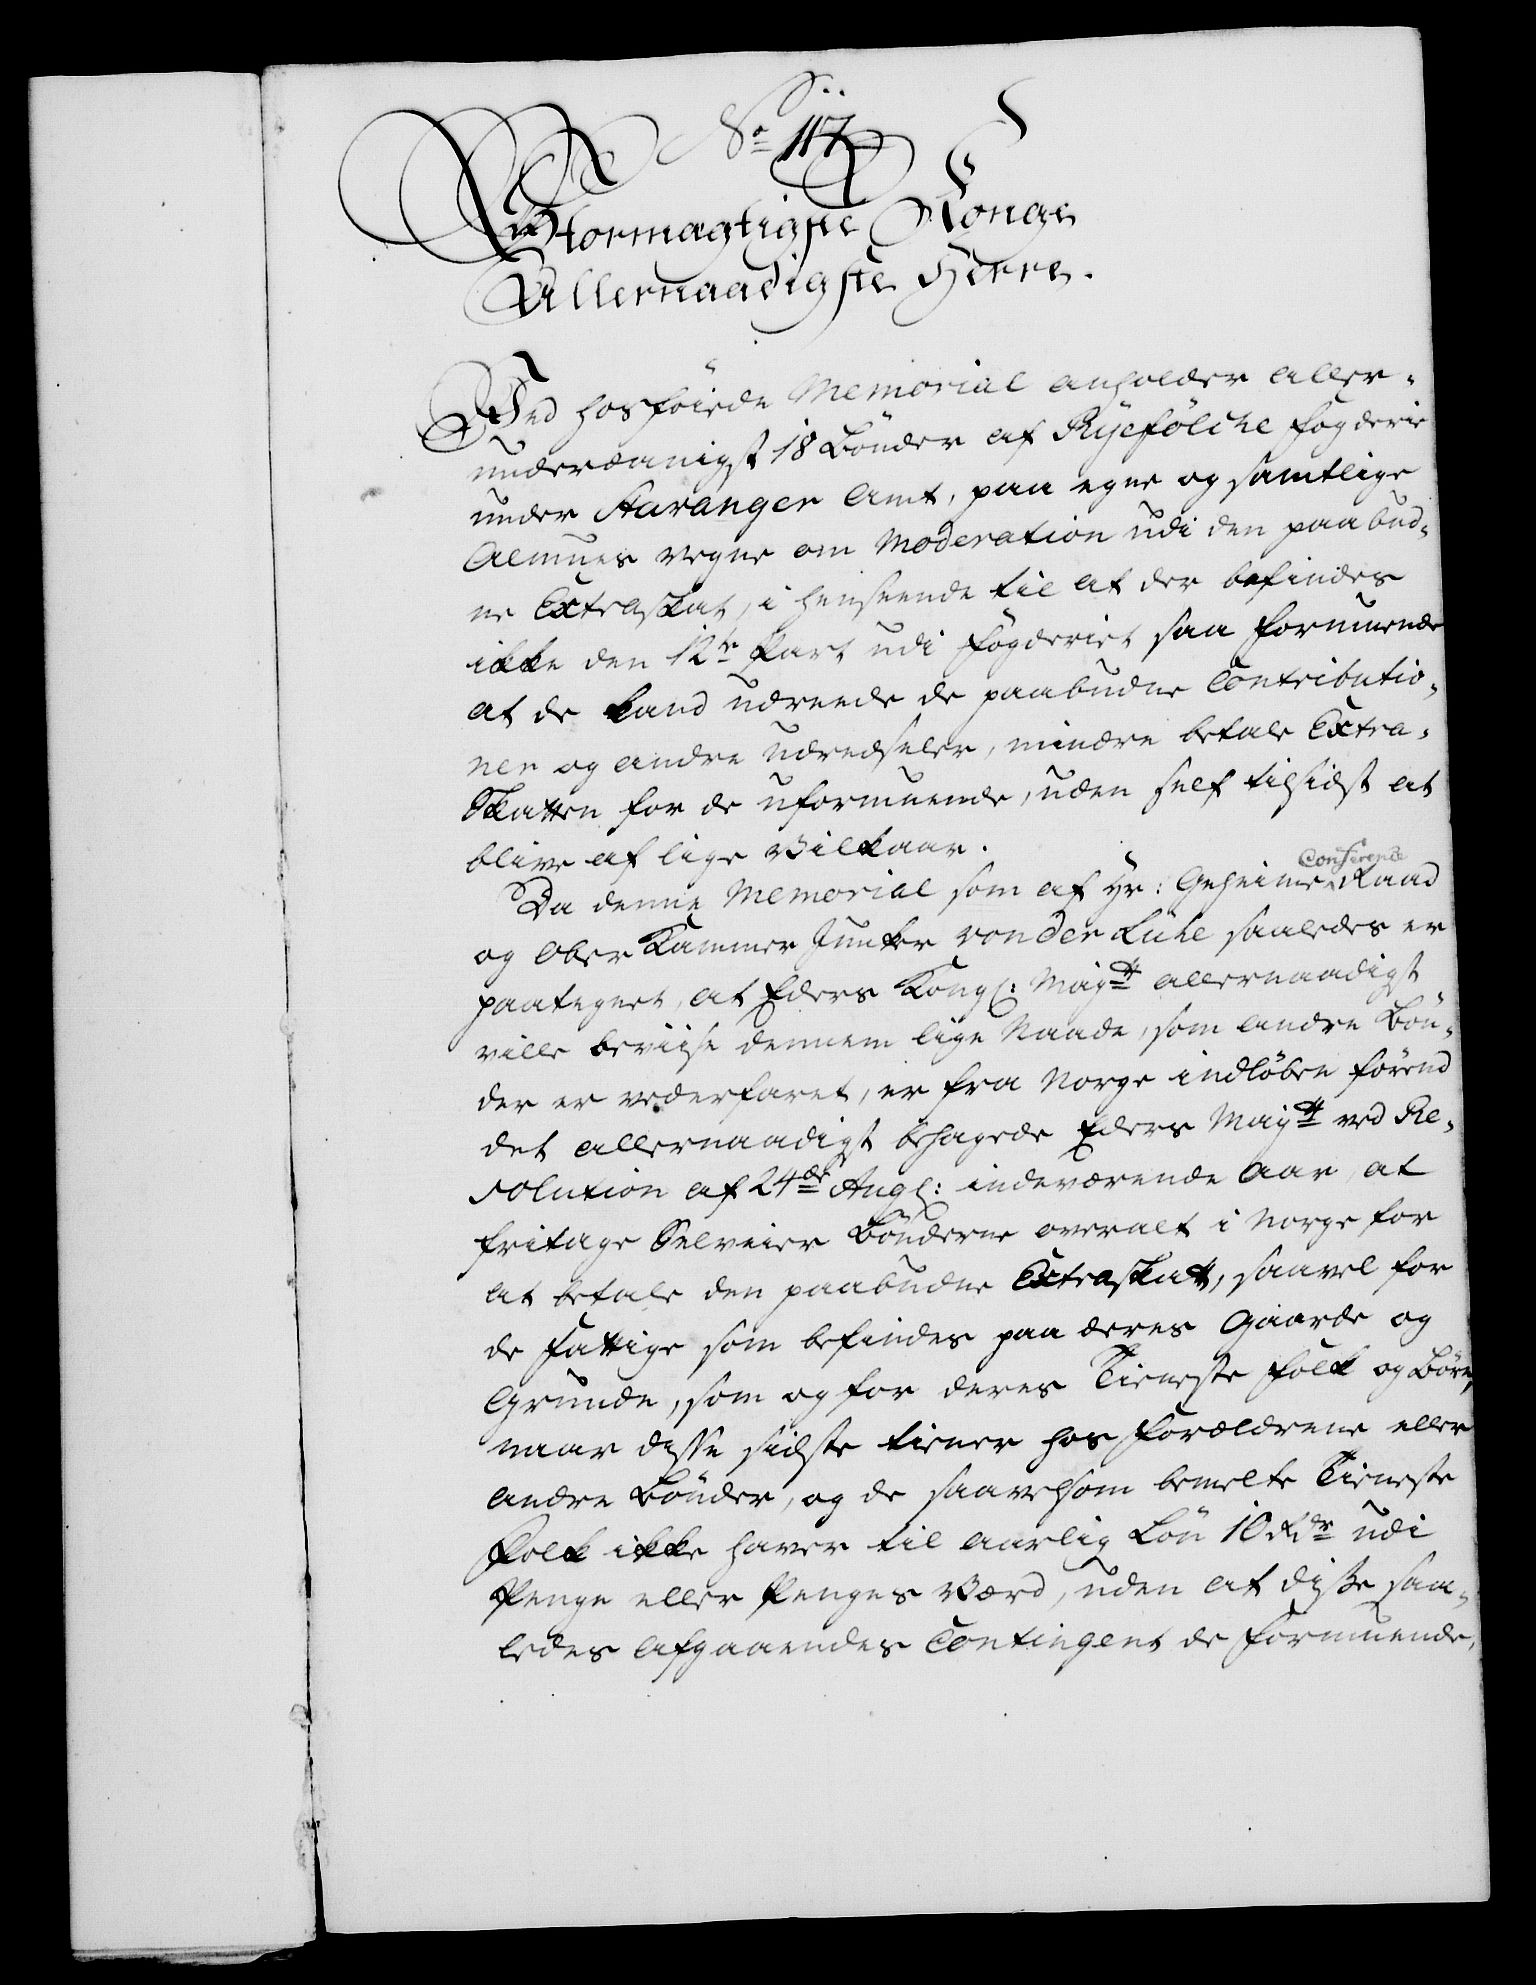 No 117
Stormægtigste Konge
Allernaadigste Herre.
Ved hosføiede Memorial anholder aller-
underdanigst 18 Bønder af Ryefølche Fogderie
under Stavanger Amt, paa egne og samtlige
Almues vegne om Moderation udi den paabud-
ne Extraskat, i henseende til at der befindes
ikke den 12te Part udi Fogderiet saa formuende
at de kand udreede de paabudne Contributio-
ner og andre udredseler, mindre betale Extra-
Skatten for de uformuende, uden self tilsidst at
blive af lige Vilkaar.
Da denne Memorial som af Hr: Geheime Conference Raad
og Ober Kammer Junker von der Lühe saaledes er
paategnet, at Eders Kongl: Mayts allernaadigst
ville beviise dennem lige Naade, som andre Bøn-
der er vederfaret, er fra Norge indløben førend
det allernaadigst behagede Eders Mayts ved Re-
solution af 24de Augs: indeværende Aar, at
fritage Selveier Bønderne overalt i Norge for
at betale den paabudne Extraskatt, saavel for
de Fattige som befindes paa deres Gaarde og
Grunde, som og for deres Tieneste folk og Børn,
naar disse sidste tiener hos Forældrene eller
andre Bønder, og de saavelsom bemelte Tieneste
Folk ikke haver til aarlig Løn 10 Rdr udi
Penge eller Penges Værd, uden at disse saa-
ledes afgaaendes Contingent de formuende,